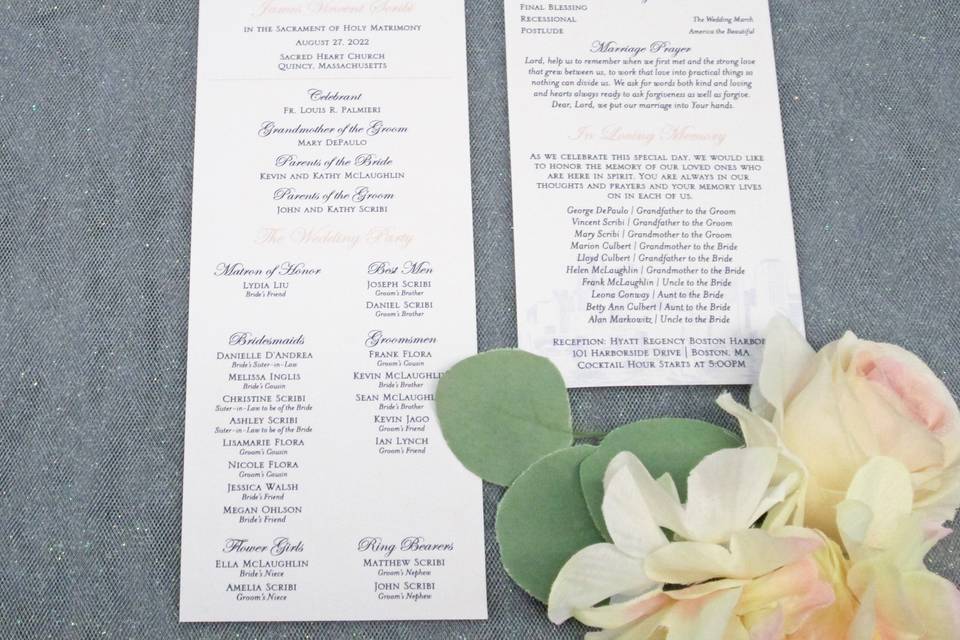 James Vincent Scribi
in the Sacrament of Holy Matrimony
August 27, 2022
Sacred Heart Church
Quincy, Massachusetts
Celebrant
Fr. Louis R. Palmieri
Grandmother of the Groom
Mary DePaulo
Parents of the Bride
Kevin and Kathy McLaughlin
Parents of the Groom
John and Kathy Scribi
The Wedding Party
Matron of Honor
Lydia Liu
Bride's Friend
Best Men
Joseph Scribi
Groom's Brother
Daniel Scribi
Groom's Brother
Bridesmaids
Danielle D'Andrea
Bride's Sister-in-Law
Melissa Inglis
Bride's Cousin
Christine Scribi
Sister-in-Law to be of the Bride
Ashley Scribi
Sister-in-Law to be of the Bride
Lisamarie Flora
Groom's Cousin
Nicole Flora
Groom's Cousin
Jessica Walsh
Bride's Friend
Megan Ohlson
Bride's Friend
Groomsmen
Frank Flora
Groom's Cousin
Kevin McLaughlin
Bride's Brother
Sean McLaughl
Bride's Brother
Kevin Jago
Groom's Friend
Ian Lynch
Groom's Friend
Flower Girls
Ella McLaughlin
Bride's Niece
Amelia Scribi
Groom's Niece
Ring Bearers
Matthew Scribi
Groom's Nephew
John Scribi
Groom's Nephew
Final Blessing
Recessional The Wedding March
Postlude America the Beautiful
Marriage Prayer
Lord, help us to remember when we first met and the strong love
that grew between us, to work that love into practical things so
nothing can divide us. We ask for words both kind and loving
and hearts always ready to ask forgiveness as well as forgive.
Dear, Lord, we put our marriage into Your hands.
In Loving Memory
As we celebrate this special day, we would like
to honor the memory of our loved ones who
are here in spirit. You are always in our
thoughts and prayers and your memory lives
on in each of us.
George DePaulo | Grandfather to the Groom
Vincent Scribi | Grandfather to the Groom
Mary Scribi | Grandmother to the Groom
Marion Culbert | Grandmother to the Bride
Lloyd Culbert | Grandfather to the Bride
Helen McLaughlin | Grandmother to the Bride
Frank McLaughlin | Uncle to the Bride
Leona Conway | Aunt to the Bride
Betty Ann Culbert | Aunt to the Bride
Alan Markowitz | Uncle to the Bride
Reception: Hyatt Regency Boston Harbor
101 Harborside Drive | Boston, MA
Cocktail Hour Starts at 5:00pm